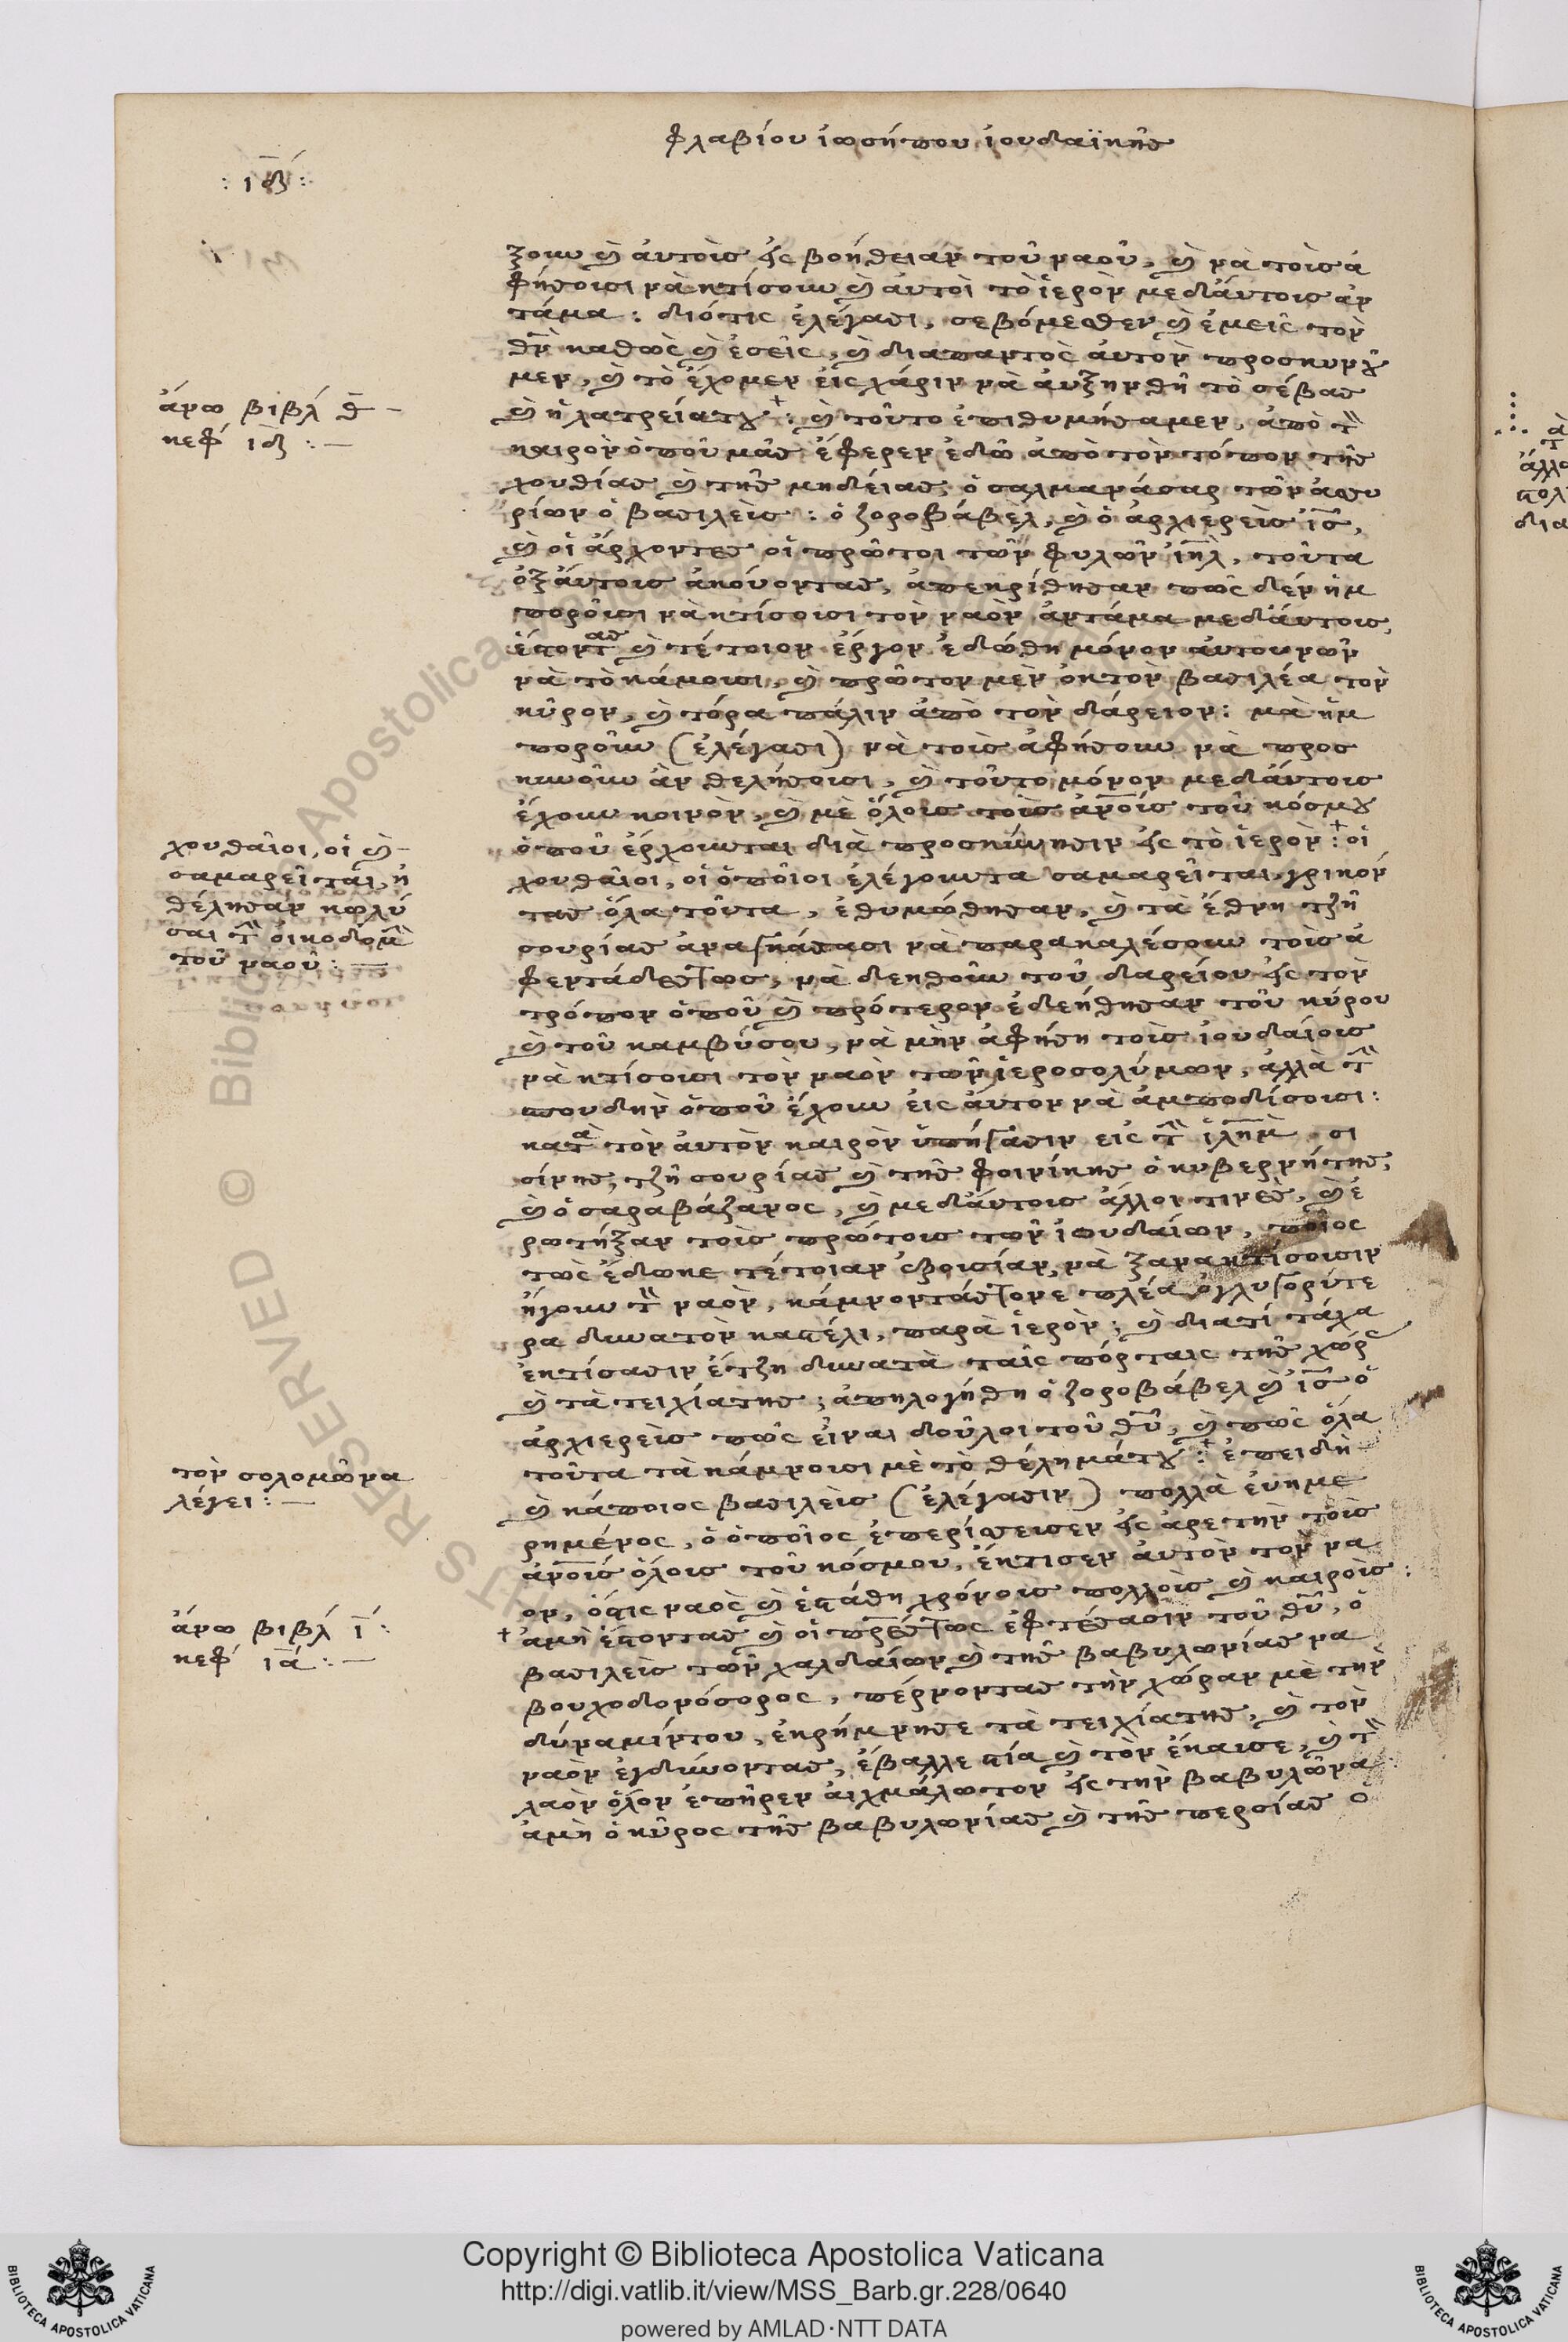 φλαβίου ἰωσήπου ἰουδαϊκῆς
: ιδ :
ξουν καὶ ἀυτοὶς εἰς βοήθειαν τοῦ ναοῦ, καὶ νὰ τοὶς ἀ
φήσουσι νὰ κτίσουν καὶ ἀυτοὶ τὸ ἱερὸν μεδἀυτοις ἀν
τάμα : διότις ἐλέγασι, σεβόμεσθεν καὶ ἐμεῖς τὸν
θν̅ καθὼς καὶ ἐσεῖς, καὶ διαπαντὸς ἀυτὸν προσκυνοῦ
μεν, καὶ τὸ ἔχομεν εἰς χάριν νὰ ἀυξηνθῆ τὸ σέβας
καὶ ἡ λατρείατου + : καὶ τοῦτο ἐπιθυμήσαμεν, ἀπὸ τὸν
καιρὸν ὁποῦ μᾶς ἔφερεν ἐδῶ ἀπὸ τὸν τόπον τῆς
χουθίας καὶ τῆς μηδείας, ὁ σαλμανάσαρ τῶν ἀσυ
ρίων ὁ βασιλεὶς : ὁ ζοροβάβελ, καὶ ὁ ἀρχιερεὶς ις̅,
καὶ οἱ ἄρχοντες οἱ πρῶτοι τῶν φυλῶν ιηλ̅, τοῦτα
ὀξἀυτοις ἀκούοντας, ἀπεκρίθησαν πῶς δὲν ἠμ
ποροῦσι νὰ κτίσουσι τὸν ναὸν ἀντάμα μεδἀυτοις,
ἔστοντας καὶ τέτοιον ἔργον ἐδώθη μόνον ἀυτουνῶν
νὰ τὸ κάμουσι, καὶ πρῶτον μὲν ὀκτὸν βασιλέα τὸν
κῦρον, καὶ τόρα πάλιν ἀπὸ τὸν δάρειον : μὰ ἠμ
ποροῦν (ἐλέγασι) νὰ τοὶς ἀφήσουν νὰ προσ
κυνοῦν ἂν θελήσουσι, καὶ τοῦτο μόνον μεδἀυτοις
ἔχουν κοινὸν, καὶ μὲ ὅλοις τοὶς ἀν̅οὶς τοῦ κόσμου
ὁποῦ ἔρχουνται διὰ προσκύνησιν εἰς τὸ ἱερὸν + : οἱ
χουθαῖοι, οἱ ὁποῖοι ἐλέγουντα σαμαρεῖται, γρικόν
τας ὅλα τοῦτα, ἐθυμώθησαν, καὶ τὰ ἔθνη τζῆ
σουρίας ἀναστάσασι νὰ παρακαλέσουν τοὶς ἀ
φεντάδεστως, νὰ δεηθοῦν τοῦ δαρείου εἰς τὸν
τρόπον ὁποῦ καὶ πρότερον ἐδεήθησαν τοῦ κύρου
καὶ τοῦ καμβύσου, νὰ μὴν ἀφήση τοὶς ἰουδαίοις
νὰ κτίσουσι τὸν ναὸν τῶν ἱεροσολύμων, ἀλλὰ τὴν
σπουδὴν ὁποῦ ἔχουν εἰς ἀυτον νὰ ἀμποδίσουσι :
κατὰ τὸν ἀυτὸν καιρὸν ὑπήγασιν εἰς τὴν ιλημ̅ σι
σίνης, τζῆ σουρίας καὶ τῆς φοινίκης ὁ κυβερνήτης,
καὶ ὁ σαραβάζανος, καὶ μεδἀυτοις ἄλλοι τινὲς, καὶ ἐ
ρωτήξαν τοὶς πρώτοις τῶν ἰουδαίων, ποῖος
τῶς ἔδωκε τέτοιαν ἐξουσίαν, νὰ ξανακτίσουσιν
ἤγουν τὸν ναὸν, κάμνοντάστονε πλέα ὀγλυγορίτε
ρα δυνατὸν καστέλι, παρὰ ἱερὸν ; καὶ διατί τάχα
ἐκτίσασιν ἔτζη δυνατὰ ταῖς πόρταις τῆς χώρας
καὶ τὰ τειχίατης ; ἀπηλογήθη ὁ ζοροβάβελ καὶ ις̅ ὁ
ἀρχιερεὶς πῶς εἶναι δοῦλοι τοῦ θυ̅, καὶ πῶς ὅλα
τοῦτα τὰ κάμνουσι μὲ τὸ θέλημάτου + : ἐπειδὴ
καὶ κάποιος βασιλεὶς (ἐλέγασιν) πολλὰ ἐυημε
ρημένος, ὁ ὁποῖος ἐπερίσσευσεν εἰς ἀρετὴν τοὶς
ἀν̅οὶς ὅλοις τοῦ κόσμου, ἔκτισεν ἀυτὸν τὸν να
ον, ὅστις ναὸς καὶ ἐστάθη χρόνοις πολλοὶς καὶ καιροὶς :
+ ἀμὴ ἔστοντας καὶ οἱ πρ̅έστως ἐφτέσασιν τοῦ θυ̅, ὁ
βασιλεὶς τῶν χαλδαίων καὶ τῆς βαβυλωνίας να
βουχοδονόσορος, πέρνοντας τὴν χώραν μὲ τὴν
δύναμίντου, ἐκρήμνησε τὰ τειχίατης, καὶ τὸν
ναὸν ἐγδύνοντας, ἔβαλλε στία καὶ τὸν ἔκαυσε, καὶ τὸν
λαὸν ὅλον ἐπῆρεν ἀιχμάλωτον εἰς τὴν βαβυλῶνα
ἀμὴ ὁ κῦρος τῆς βαβυλωνίας καὶ τῆς περσίας ὁ
ἄνω βιβλί θ –
κεφ́ ιδ : –
χουθαῖοι, οἱ καὶ –
σαμαρεῖται, ἠ
θέλησαν κωλύ
σαι τὴν οἰκοδομὴν
τοῦ ναοῦ : –
τὸν σολομῶνα
λέγει : –
ἄνω βιβλί ι̅ :
κεφ́ ια : –
Copyright © Biblioteca Apostolica Vaticana
http://digi.vatlib.it/view/MSS_Barb.gr.228/0640
powered by AMLAD·NTT DATA
BIBLIOTECA APOSTOLICA VATICANA
BIBLIOTECA APOSTOLICA VATICANA